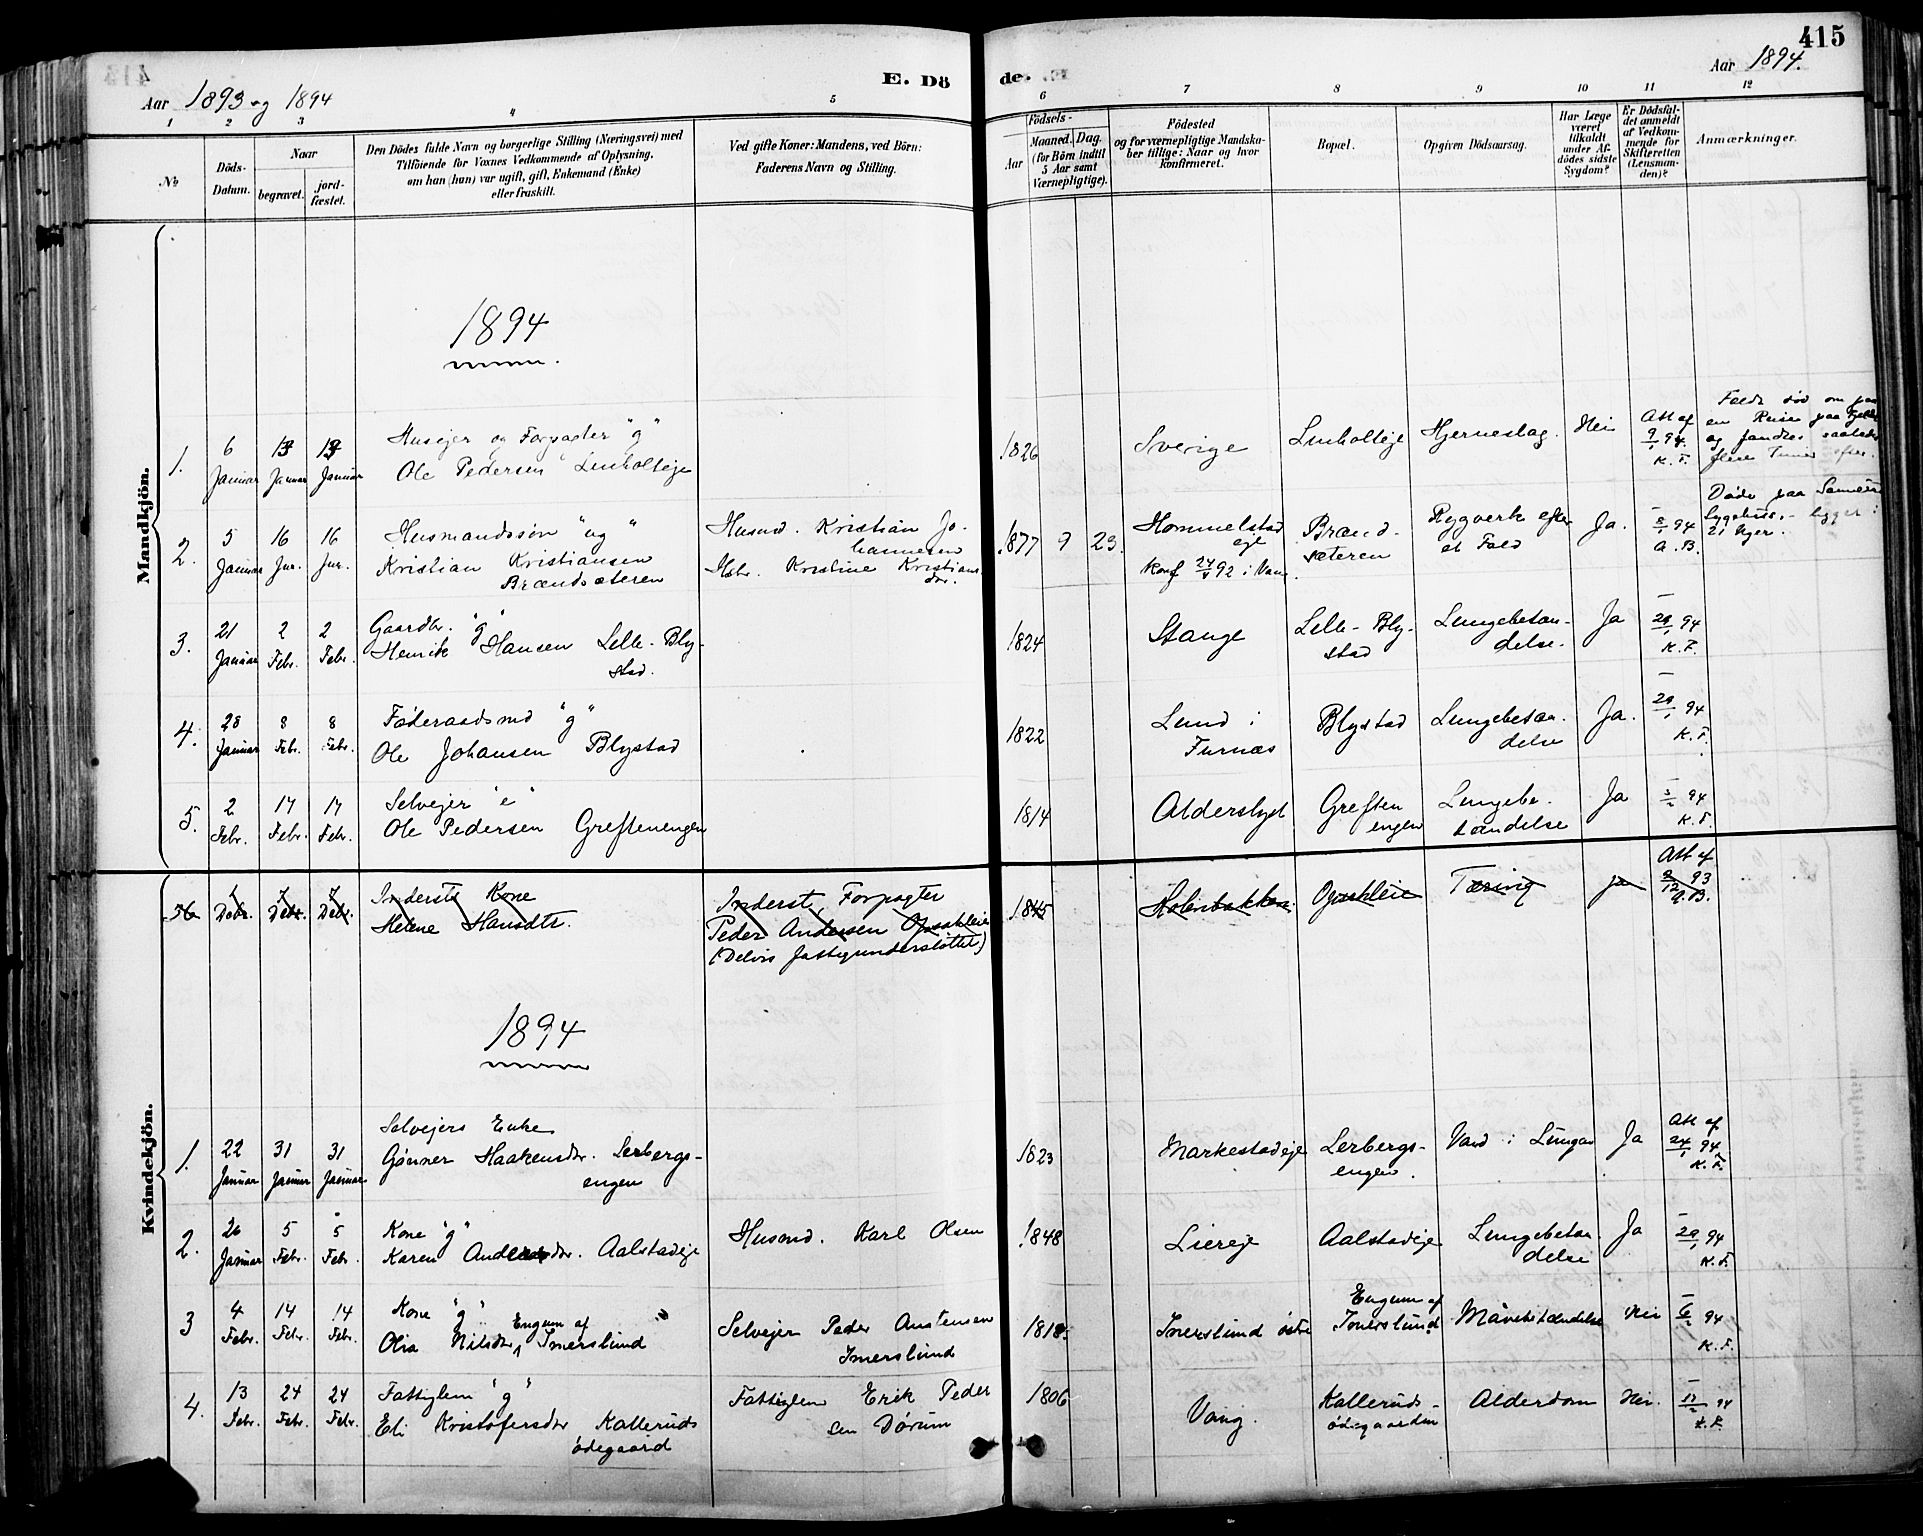 415
Aar 1893 og 1894
E. Döde.
Aar 1894.
1 2 3 4 5 6 7 8 9 10 11 12
No
Döds-Datum.
Naar
begravet.
jord-fæstet.
Den Dödes fulde Navn og borgerlige Stilling (Næringsvei) med
Tilföiende for Voxnes Vedkommende af Oplysning,
om han (hun) var ugift, gift, Enkemand (Enke)
eller fraskilt.
Ved gifte Koner: Mandens, ved Börn:
Faderens Navn og Stilling.
Födsels-
Aar
Maaned. Dag.
(for Börn indtil
5 Aar samt
Værnepligtige).
Födested
og for værnepligtige Mandska-
ber tillige: Naar og hvor
konfirmeret.
Bopæl.
Opgiven Dödsaarsag.
Har Læge
været
tilkaldt
under Af-
dödes sidste
Sygdom?
Er Dödsfal-
det anmeldt
af Vedkom-
mende for
Skifteretten
(Lensman-
den)?
Anmærkninger.
Mandkjön.
1894
1. 6 Januar 13 Januar 13 Januar
Husejer og Forpagter "g"
Ole Pedersen Linholteje
1826 Sverige Linholteje Hjerneslag. Nei
Att af 9/1 94. K. F.
2. 5 Januar 16 Jnr. 16 Jnr.
Husmandssøn "ug"
Kristian Kristiansen
Brændsæteren
Husmd. Kristian Jo-
hannesen
Hstr. Kristine Kristians
dtr.
1877 9 23. Hommelstad
eje
konf 24/4 92 i Vang
Brænd-
sæteren
Rygverk efter
et Fald
Ja. 8/1 94 A. B.
Døde paa Sanners
Sygehus. - ligger i
21 Uger.
3. 21 Januar 2 Febr. 2 Febr.
Gaardbr. "g"
Henrik Hansen Lille-Bly-
stad.
1824 Stange Lille-Bly-
stad
Lungebetæn-
delse.
Ja 29/1 94 K. F.
4. 28 Januar 8 Febr. 8 Febr.
Føderaadsmd "g"
Ole Johansen Blystad
1822 Lund i
Furnæs
Blystad Lungebetæn-
delse
Ja. 29/1 94 K. F.
5. 2 Febr. 17 Febr. 17 Febr.
Selvejer "e"
Ole Pedersen Greftenengen
1814 Alderslyst Greften
engen
Lungebe-
tændelse
Ja 5/2 94 K. F.
Kvindekjön.
56 1 Debr. 7 Debr. 7 Debr.
Inderst Kone
Helene Hansdtr.
Inderst, Forpagter
Peder Andersen Opsakleie
(Delvis fattigunderstøttet)
1845 Holenbakken Opsakleie Tæring ja
Att af 8/12 93 A. B.
1894
1. 22 Januar 31 Januar 31 Januar
Selvejers Enke
Gunner Haakensdtr. Lerbergs-
engen
1823 Markestadeje Lerbergs-
engen.
Vand i Lungen Ja
Att af 24/1 94 K. F.
2. 26 Januar 5 Febr. 5 Febr.
Kone "g"
Karen Andersdtr. Aalstadeje
Husmd. Karl Olsen
1848 Liereje Aalstadeje Lungebetæn
delse
Ja 29/1 94 K. F.
3 4 Febr. 14 Febr. 14 Febr.
Kone "g"
Engum af
Olia Nilsdtr Imerslund
Selvejer Peder Austensen
Imerslund
1818. Imerslund østre
Engum af
Imerslund
Mavebetændelse Nei 6/2 94 K. F.
4. 13 Febr. 24 Febr. 24 Febr.
Fattiglem "g"
Eli Kristofersdtr Kallerud-
ødegaard
Fattiglem Erik Peder
sen Dørum
1806 Vang. Kalleruds-
ødegaarden
Alderdom Nei. 17/2 94 K. F.